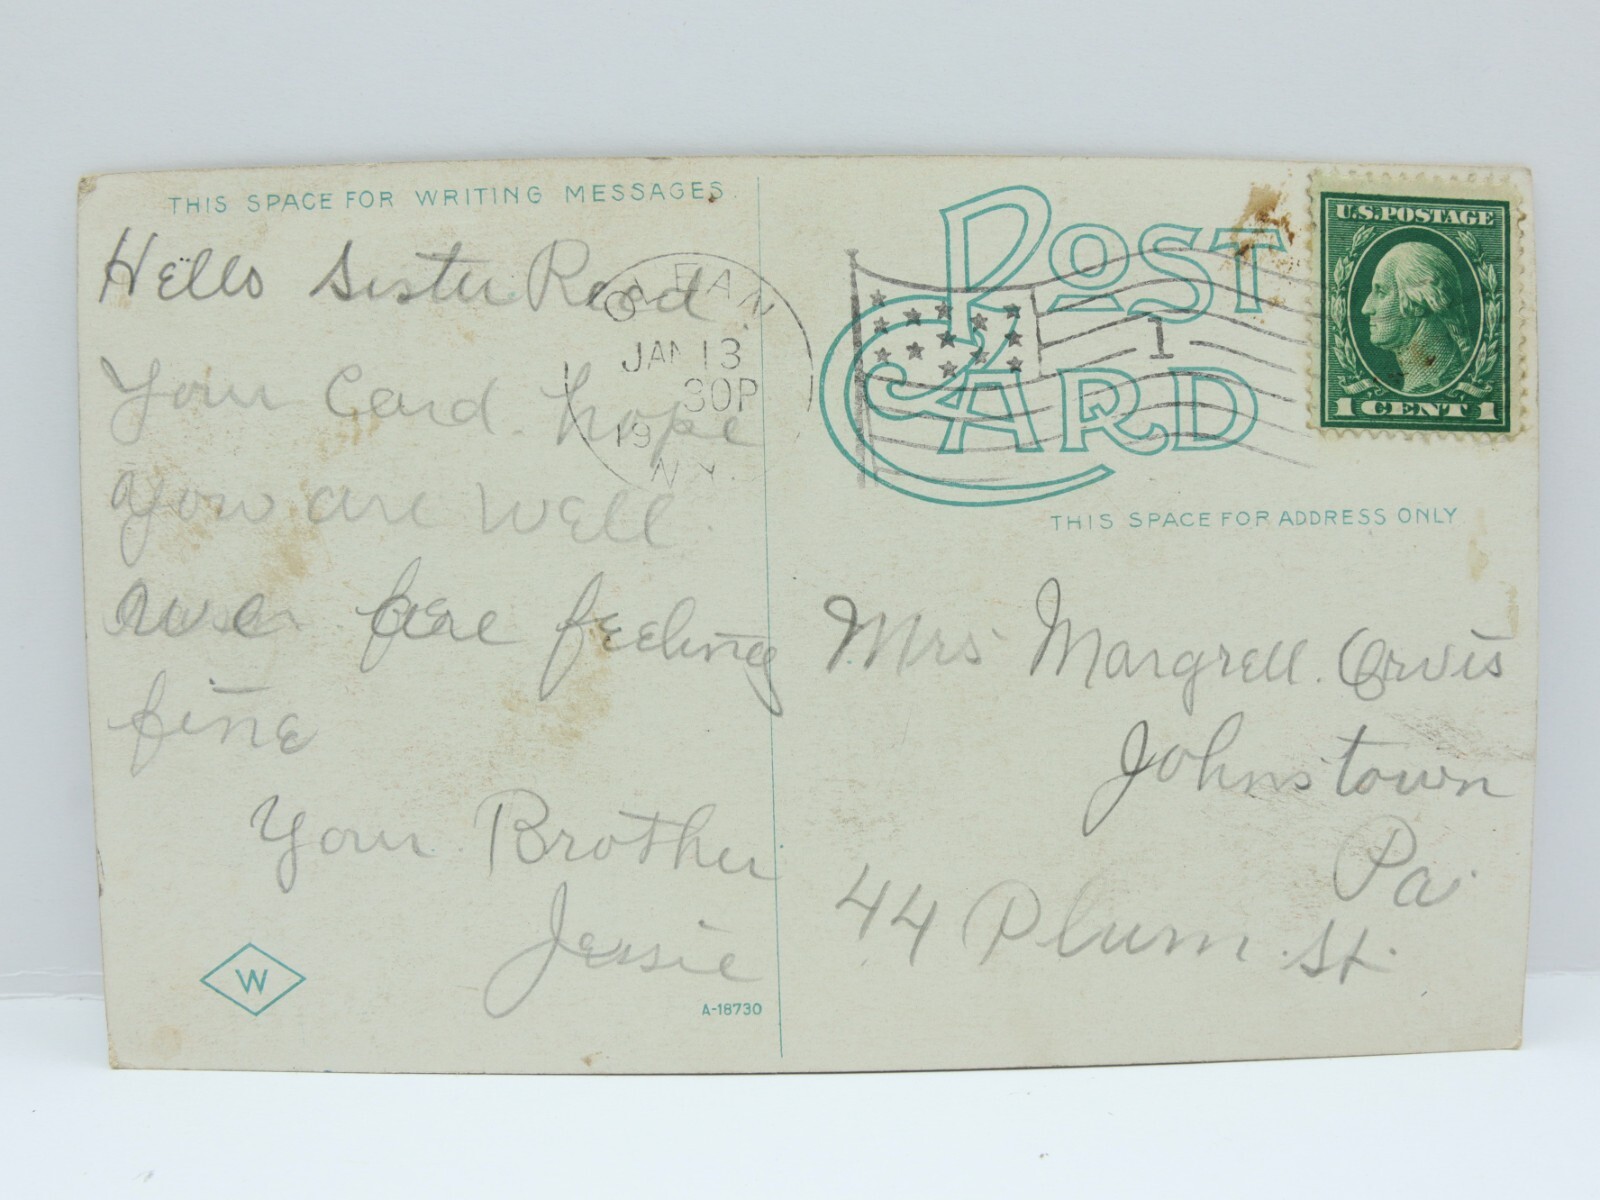 THIS SPACE FOR WRITING MESSAGES.
Hello Sister Recd
Your Card. hope
you are well.
are feeling
fine
Your Brother
Jessie
W
A-18730
OLEAN
JAN 13
30P
19
N.Y.
1
POST CARD
U.S. POSTAGE
1 CENT 1
THIS SPACE FOR ADDRESS ONLY
Mrs Margrell. Orvis
Johnstown
Pa.
44 Plum. St.